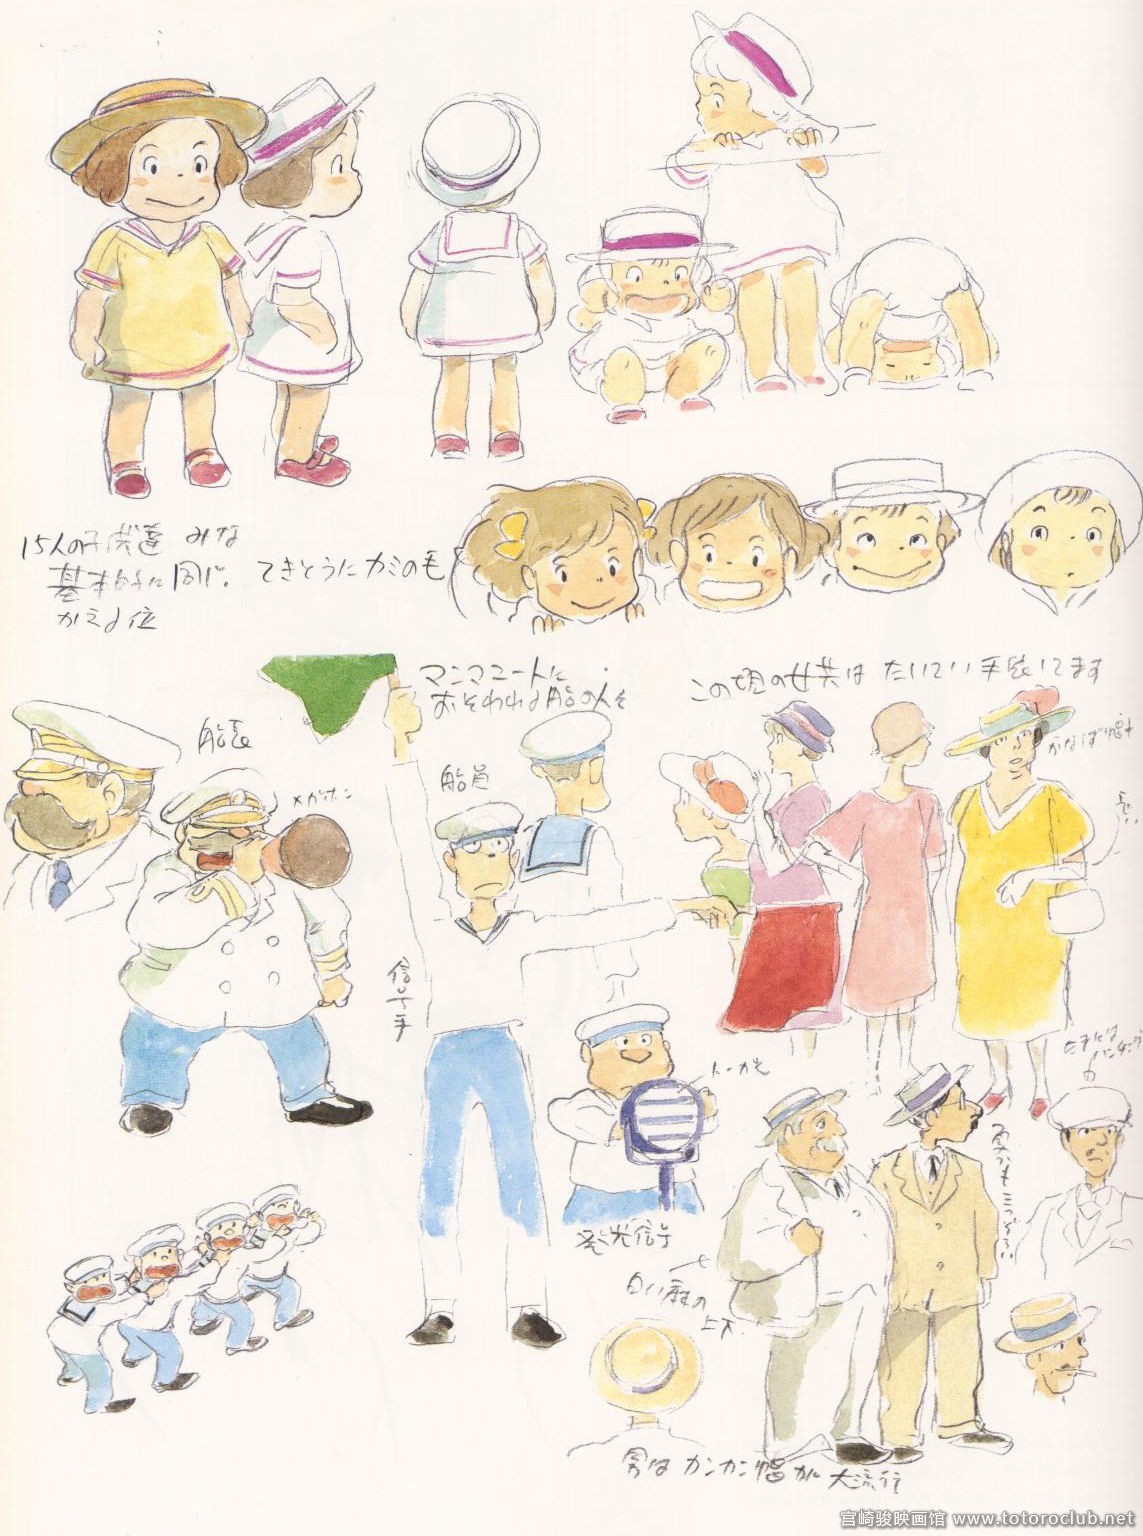 15人の子供達 みな
基本的に同じ。 てきとうにカミの毛
かえる位
マンマユートに
おそわれる船の人々
この頃の女共は たいてい手袋してます
船長
かならず帽子
メガホン
船員
長い
信号手
たまには
ハンチング
の
発光信号
白い麻の
上下
男は カンカン帽が 大流行
宫崎骏映画馆 www.totoroclub.net